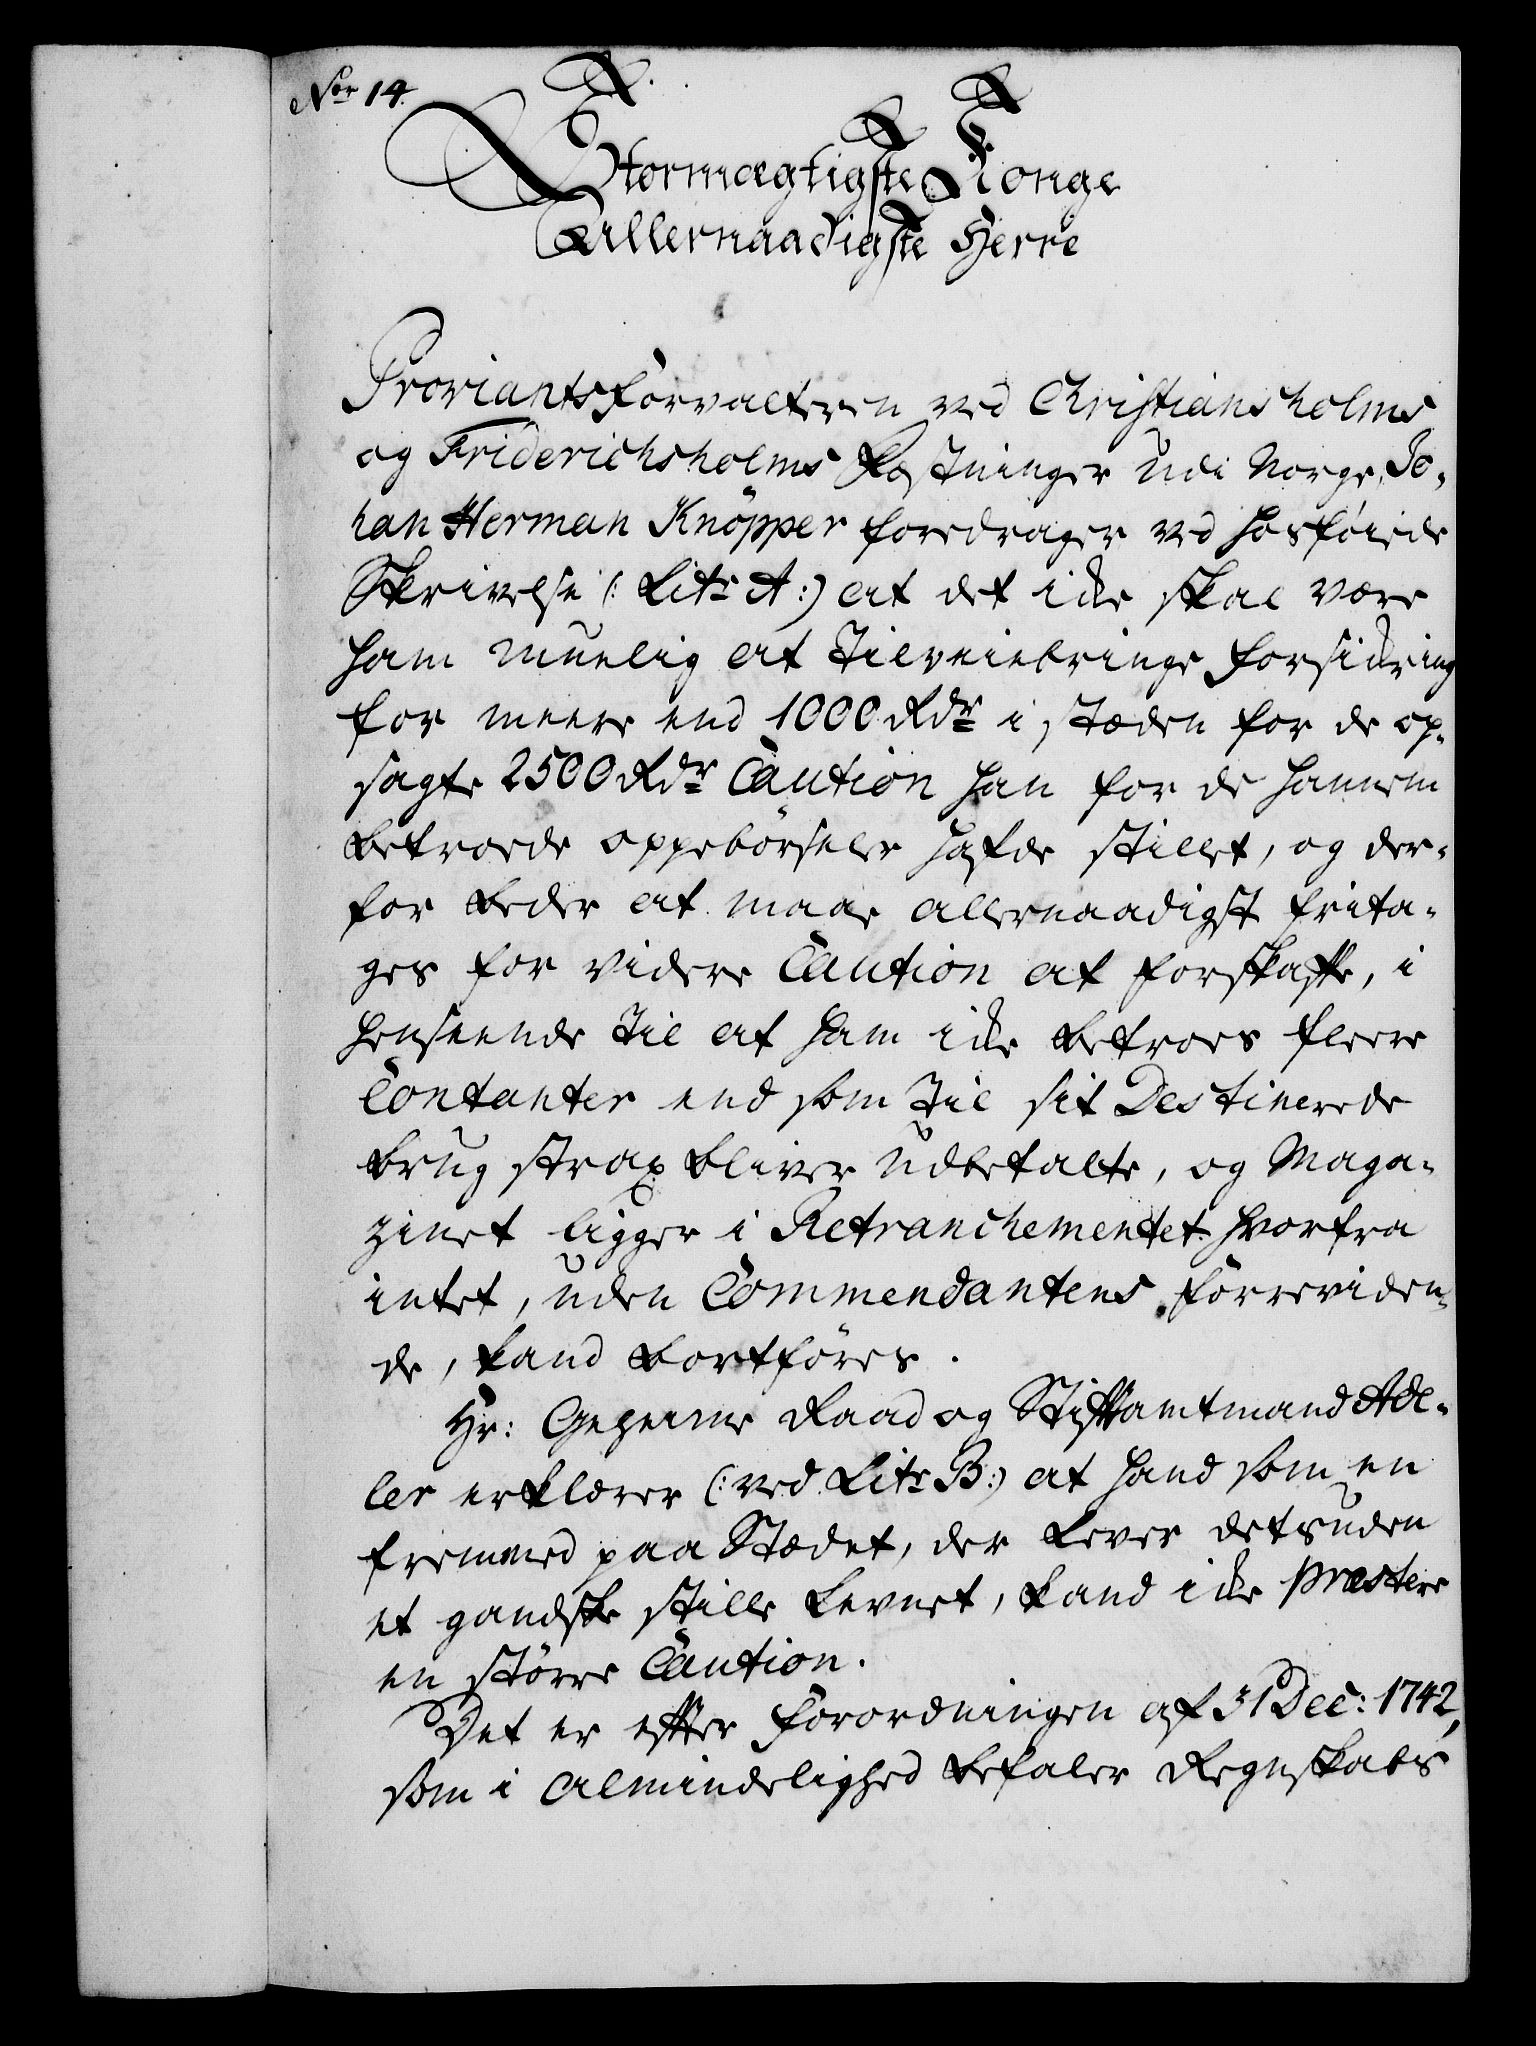 Nor 14.
Stormægtigste Konge
Allernaadigste Herre
Proviantsforvalteren ved Christiansholms
og Friderichsholms Fæstninger udi Norge, Jo-
han Herman Knöpper foredrager ved hosföiede
Skrivelse (: Litr A:) at det icke skal være
ham muelig at tilveiebringe forsickring
for meere end 1000 Rdr i stæden for de op-
sagte 2500 Rdr Caution han for de hannem
betroede oppebörseler hafde stillet, og der-
for beder at maae allernaadigst frita-
ges for videre Caution at forskaffe, i
henseende til at ham icke betroes fleere
Contanter end som til sit Destinerede
brug strax bliver udbetalte, og Maga-
zinet ligger i Retranchementet hvorfra
intet, uden Commendantens forreviden-
de, kand bortföres.
Hr: Geheime Raad og Stiftamtmand Ade-
ler erklærer (: ved Litr B:) at hand som en
fremmed paa Stædet, der lever desuden
et gandske stille levnet, kand icke præstere
en större Caution.
Det er efter Forordningen af 31 Dec: 1742,
som i Almindelighed befaler Regnskabs